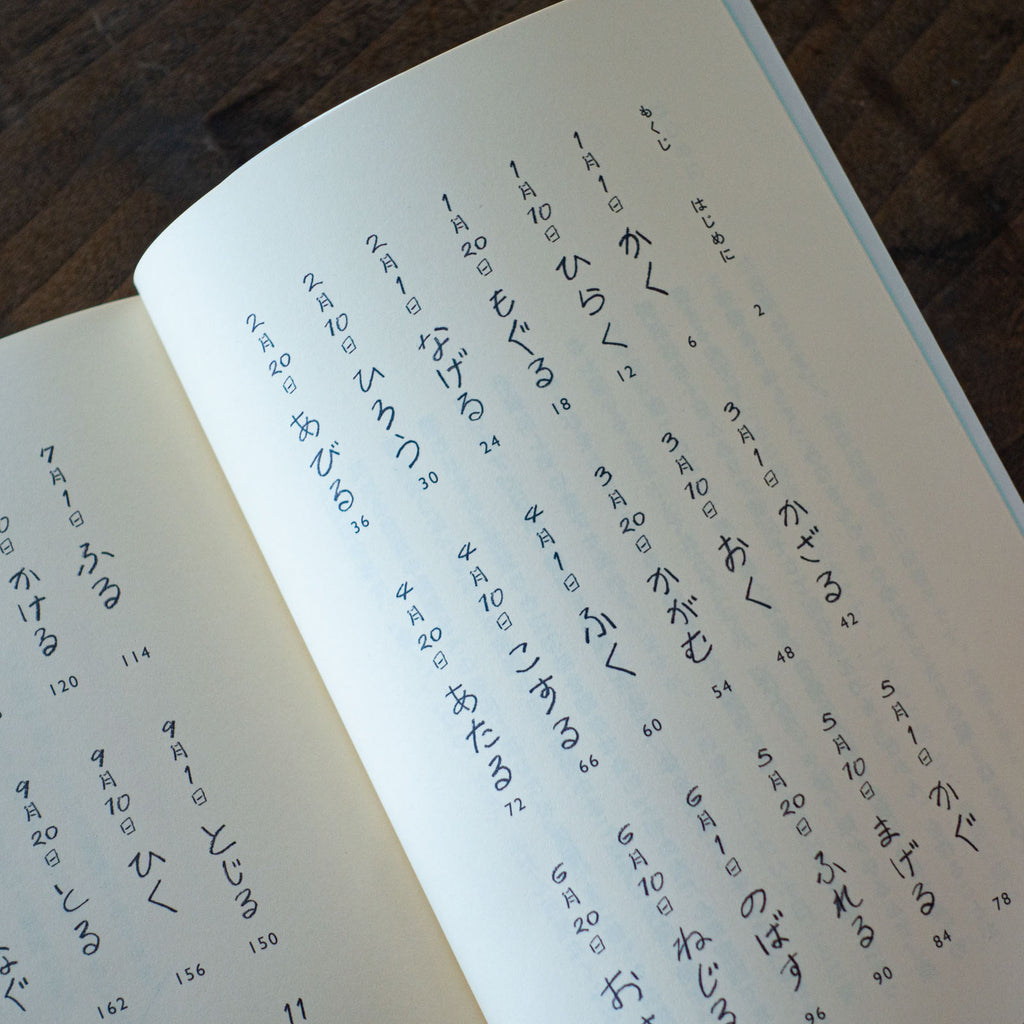 もくじ
はじめに 2
1月1日 かく 6
1月10日 ひらく 12
1月20日 もぐる 18
2月1日 なげる 24
2月10日 ひろう 30
2月20日 あびる 36
3月1日 かざる 42
3月10日 おく 48
3月20日 かがむ 54
4月1日 ふく 60
4月10日 こする 66
4月20日 あたる 72
5月1日 かぐ 78
5月10日 まげる 84
5月20日 ふれる 90
6月1日 のばす 96
6月10日 ねじる
6月20日 お
7月1日 ふる 114
0日 かける 120
9月1日 とじる 150
9月10日 ひく 156
9月20日 とる 162
なぐ
11